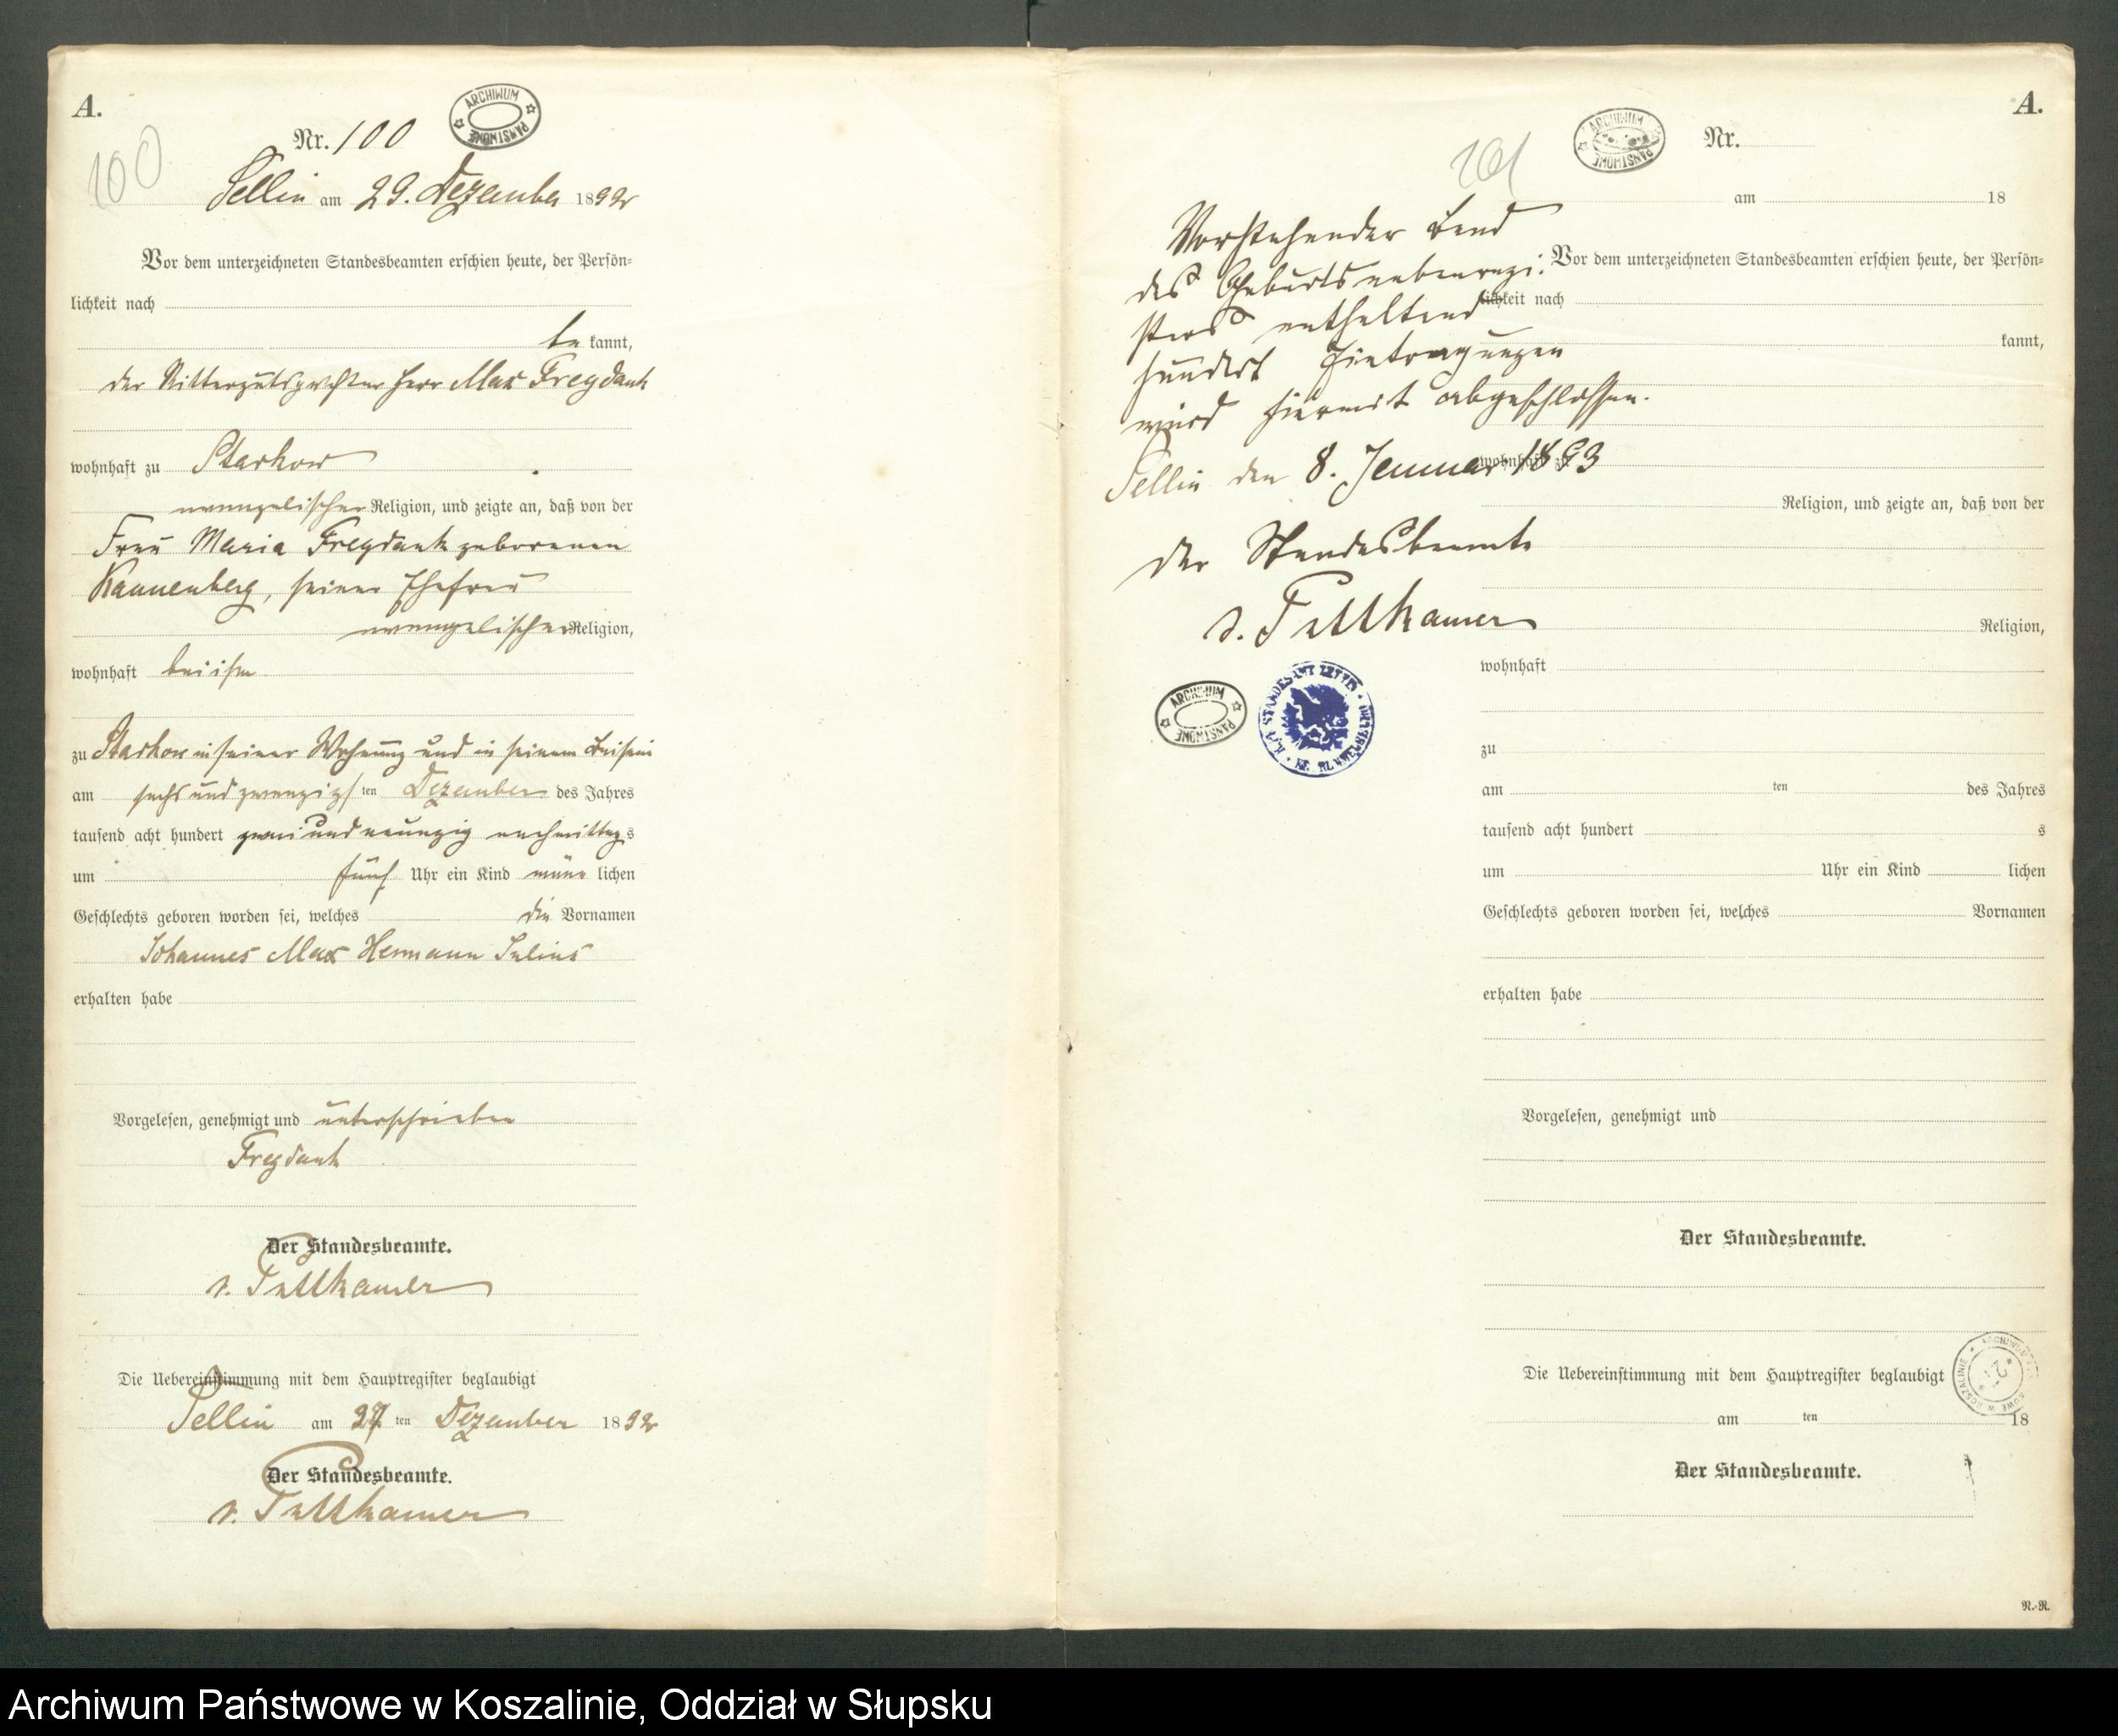 A.
100
Nr. 100
ARCHIWUM PAŃSTWOWE
Sellin am 29. Dezember 1892
Vor dem unterzeichneten Standesbeamten erschien heute, der Persön=
lichkeit nach
be kannt,
der Rittergutspächter Herr Max Freydank
wohnhaft zu Starkow
evangelischer Religion, und zeigte an, daß von der
Frau Maria Freydank geborenen
Kannenberg, seiner Ehefrau
evangelischer Religion,
wohnhaft bei ihm
zu Starkow in seiner Wohnung und in seinem Beisein
am sechs und zwanzigs ten Dezember des Jahres
tausend acht hundert zwei und neunzig nachmittag s
um fünf Uhr ein Kind männ lichen
Geschlechts geboren worden sei, welches die Vornamen
Johannes Max Hermann Julius
erhalten habe
Vorgelesen, genehmigt und unterschrieben
Freydank
Der Standesbeamte.
v. Puttkamer
Die Uebereinstimmung mit dem Hauptregister beglaubigt
Sellin am ten Dezember 1892
Der Standesbeamte.
v. Puttkamer
A.
101
ARCHIWUM PAŃSTWOWE
Nr.
am 18
Vorstehender Band
des Geburtsnebenregi-
sters enthaltend
hundert Eintragungen
wird hiermit abgeschlossen.
Sellin den 8. Januar 1893
Der Standesbeamte
v. Puttkamer
ARCHIWUM PAŃSTWOWE
Vor dem unterzeichneten Standesbeamten erschien heute, der Persön=
lichkeit nach
kannt,
wohnhaft zu
Religion, und zeigte an, daß von der
Religion,
wohnhaft
zu
am ten des Jahres
tausend acht hundert s
um Uhr ein Kind lichen
Geschlechts geboren worden sei, welches Vornamen
erhalten habe
Vorgelesen, genehmigt und
Der Standesbeamte.
Die Uebereinstimmung mit dem Hauptregister beglaubigt
am ten 18
Der Standesbeamte.
N.-R.
Archiwum Państwowe w Koszalinie, Oddział w Słupsku